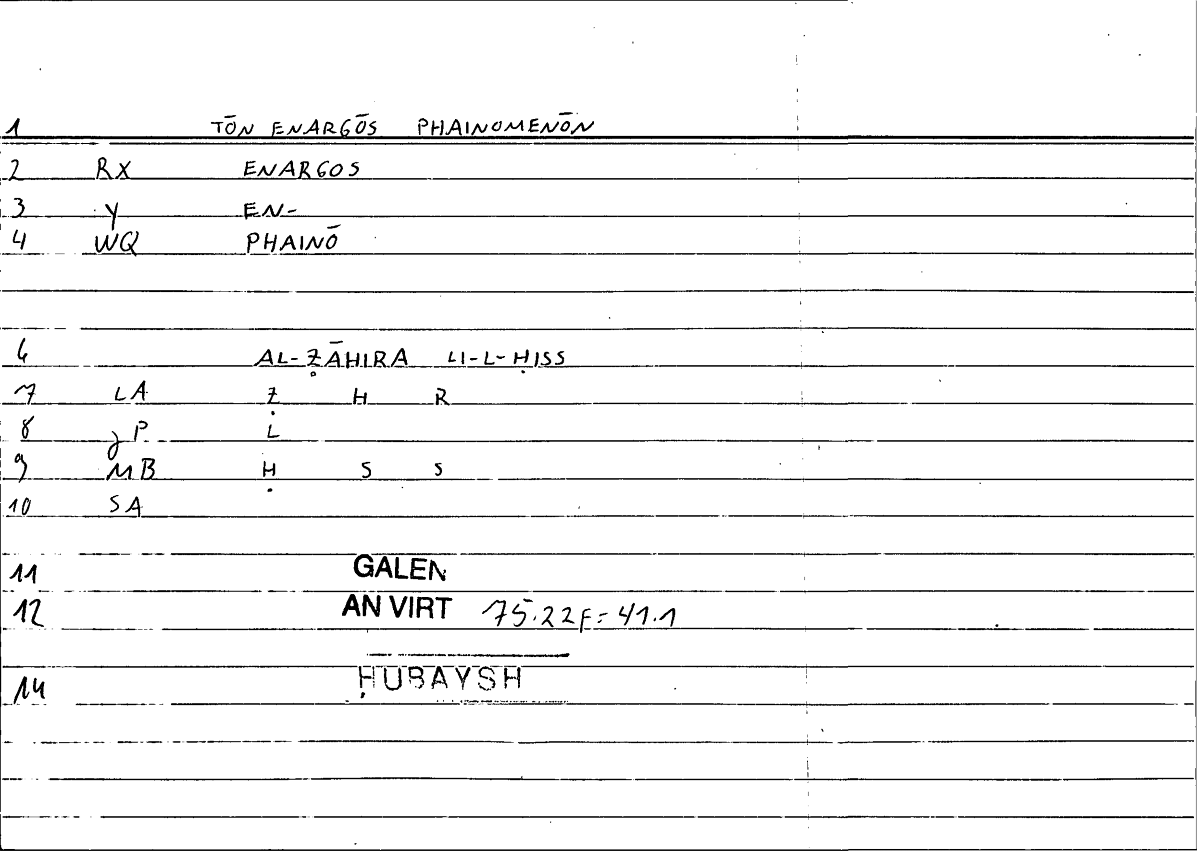 1 TŌN ENARGŌS PHAINOMENŌN
2 RX ENARGOS
3 Y EN-
4 WQ PHAINŌ
6 AL-ẒĀHIRA LI-L-ḤISS
7 LA Ẓ H R
8 P L
9 MB Ḥ S S
10 SA
11 GALEN
12 AN VIRT 75.22F = 41.1
14 ḤUBAYSH